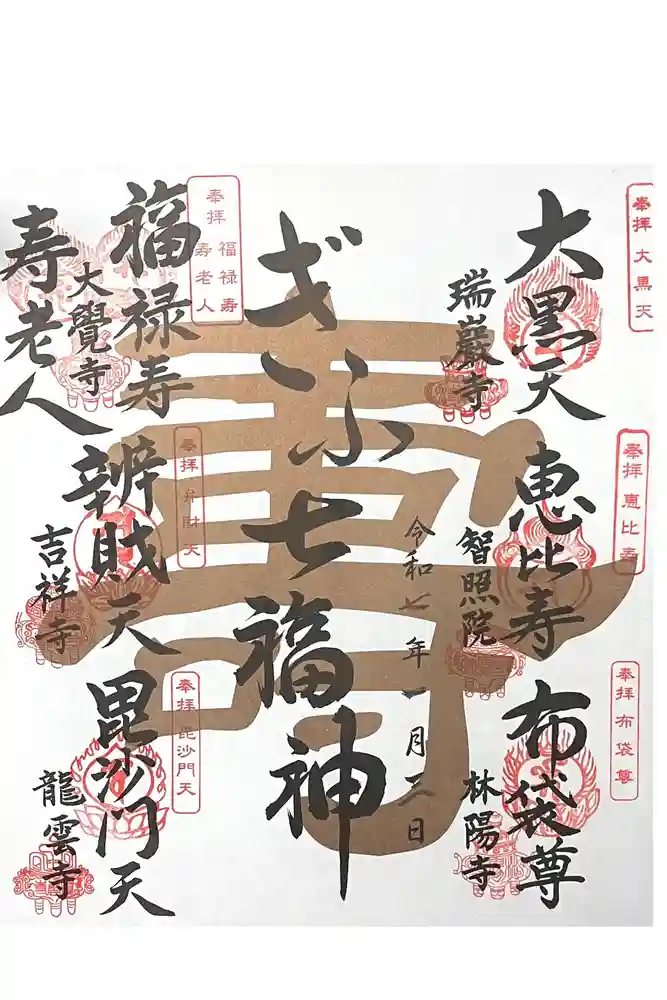 奉拝 大黒天
大黒天
瑞巖寺
奉拝 恵比寿
恵比寿
智照院
奉拝 布袋尊
布袋尊
林陽寺
令和七年一月三日
ぎふ七福神
寿
奉拝 福禄寿
寿老人
福禄寿
寿老人
大覺寺
奉拝 弁財天
辨財天
吉祥寺
奉拝 毘沙門天
毘沙門天
龍雲寺